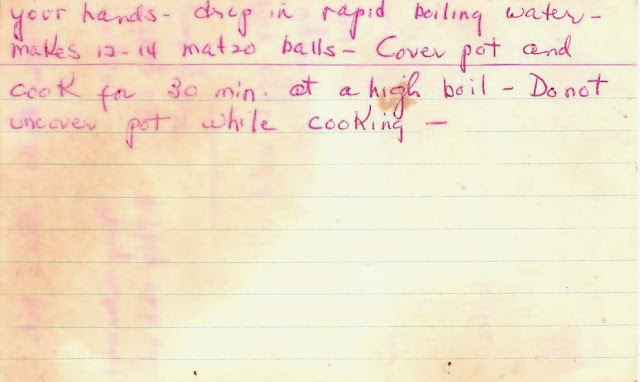 your hands- drop in rapid boiling water-
makes 12-14 matzo balls- Cover pot and
cook for 30 min. at a high boil - Do not
uncover pot while cooking -